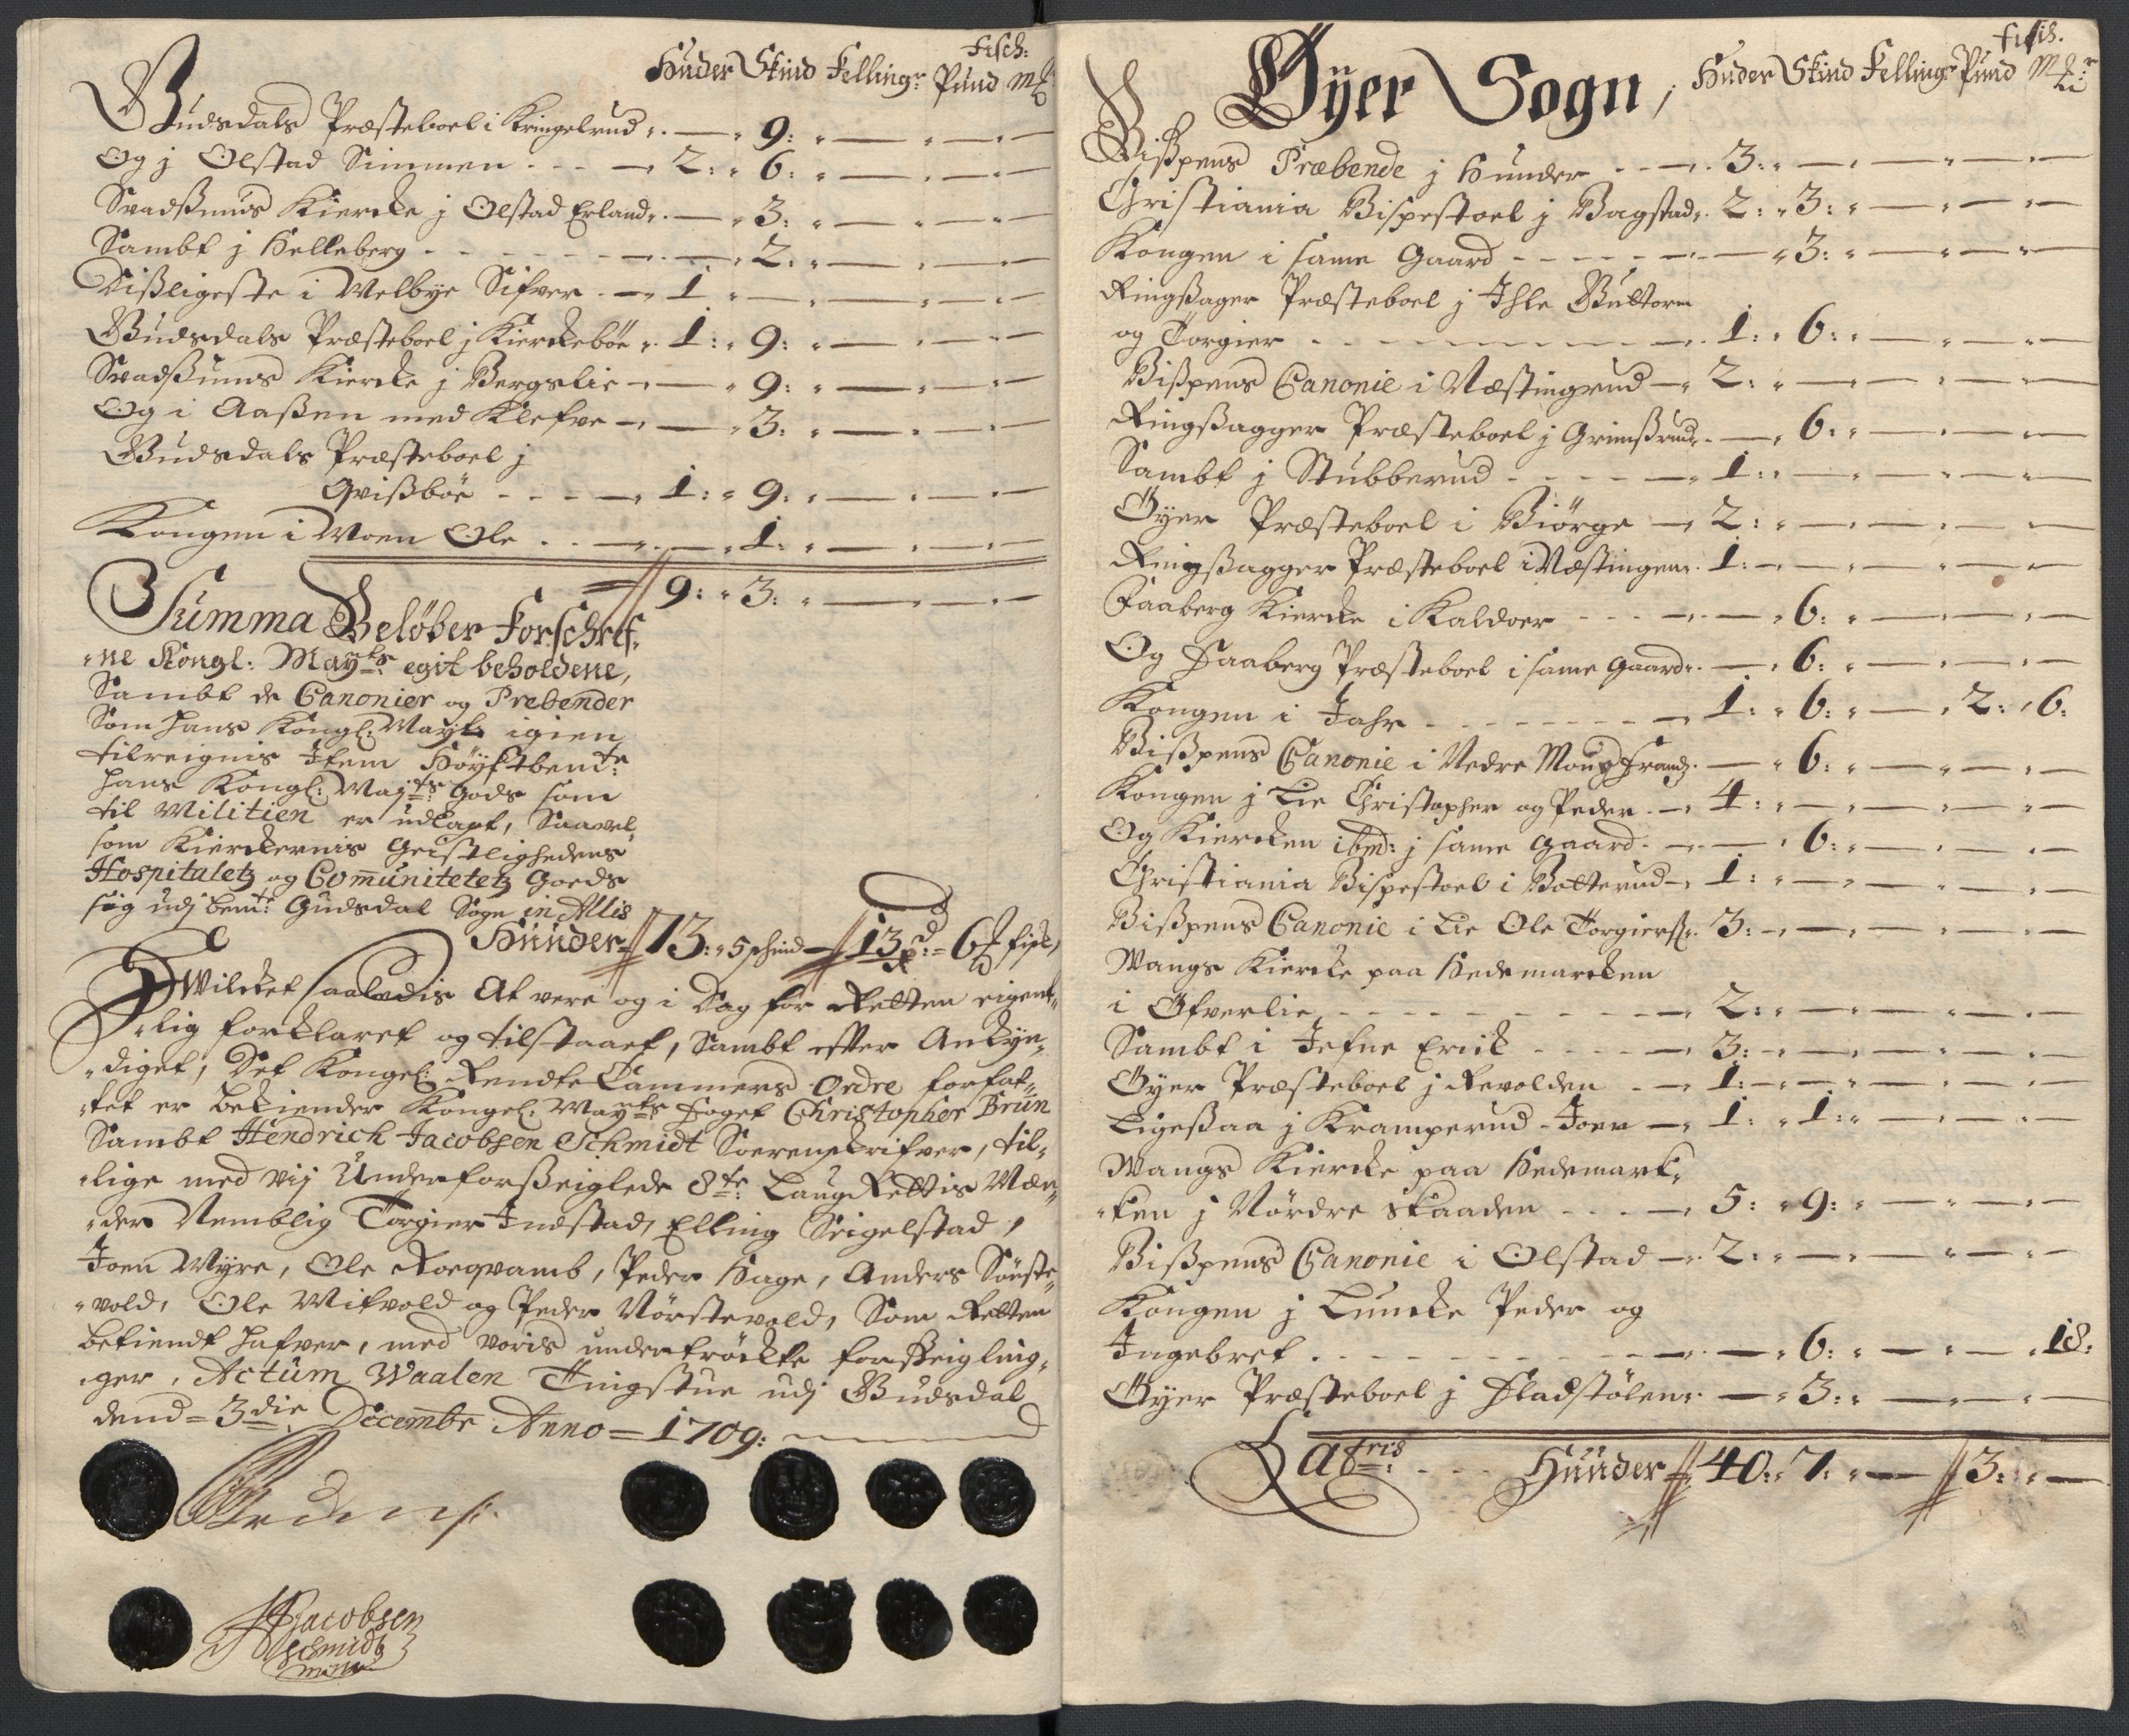 Fisch:
Huder Skind Felling: Pund Mk
Gudsdals Præsteboel i Kringelrud - 9: - - -
Og j Olstad Simmen - 2: 6: - - -
Svadsums Kiercke j Olstad Erland - 3: - - -
Sambt j Helleberg - 2: - - -
Dissligeste i Melbye Sifver - 1 - - - -
Gudsdals Præsteboel j Kierckebøe 1: 9: - - -
Svadsums Kiercke j Bergslie - 9: - - -
Og i Aassen med Klefve - 3: - - -
Gudsdals Præsteboel j
Qvissbøe - 1: 9: - - -
Kongen i Moen Ole - 1: - - -
9: 3: - - -
Summa Beløber Forschref-
ne Kongl: Mayts: egit beholdene,
Sambt de Canonier og Prebender
Som Hans Kongl: Mayt: igien
tilreignis Item Høystbemte:
Hans Kongl: Mayts: Gods som
til Militien er udlagt, Saavel
som Kierckernis Geistlighedens
Hospitaletz og Comunitetetz Goeds
sig udj bemte: Gudsdal Sogn in Allis
Hunder 73: 5 schind 13 pd: 6 fisk,
Hvilcket saaledis At vere og i Dag for Retten eigent-
lig forklaret og tilstaaet, Sambt efter Ankyn-
diget, Det Kongel: Rendte Cammers Ordre forfat-
tet er bekiender Kongel: Mayts Foget Christopher Brun
Sambt Hendrich Jacobsen Schmidt Sorenskrifver, til-
lige med vij Underforsseiglede 8te: LaugRettis Mæn-
der Nemblig Torgier Indstad, Elling Seigelstad,
Joen Myre, Ole Roeqvamb, Peder Hage, Anders Sønste-
vold, Ole Mitvold og Peder Nørstevold, Som Retten
betiendt hafver, med voris undertrøckte forsseigling-
ger, Actum Waalen Tingstue udj Gudsdal
dend 3die Decembr Anno 1709:
HJacobsen
Schmidt
mppria
Øyer Sogn,
Fisch.
Huder Skind Felling: Pund Mkr
Bisspens Præbende j Hunder - 3: - - - -
Christiania Bispestoel j Bagstad 2: 3: - - -
Kongen i same Gaard - 3: - - -
Ringssager Præsteboel j Ihle Guttorm
og Torgier 1: 6: - - -
Bisspens Canonie i Næstingrud 2: - - - -
Ringssagger Præsteboel j Grimssrud - 6: - - -
Sambt j Stubberud 1: - - - -
Øyer Præsteboel i Biørge 2: - - - -
Ringssagger Præsteboel i Næstingen 1: - - - -
Faaberg Kiercke i Kaldoer - 6: - - -
Og Faaberg Præsteboel i same Gaard - 6: - - -
Kongen i Jahr 1: 6: - 2: 6:
Bisspens Canonie i Nedre Moug Frandz - 6: - - -
Kongen j Lie Christopher og Peder 4: - - - -
Og Kiercken ibmd: j same Gaard - 6: - - -
Christiania Bispestoel i Botterud 1: - - - -
Bisspens Canonie i Lie Ole Torgierss: 3: - - - -
Wangs Kiercke paa Hedemarcken
i Ofverlie 2: - - - -
Sambt i Jefne Erick 3: - - - -
Øyer Præsteboel j Revolden 1: - - - -
Ligessaa j Kramperud Joen 1: 1: - - -
Wangs Kiercke paa Hedemarc-
ken j Nørdre Skaaden 5: 9: - - -
Bisspens Canonie i Olstad 2: - - - -
Kongen j Luncke Peder og
Ingebret - 6: - - 18:
Øyer Præsteboel j Fladstølen - 3: - - -
Latris: Hunder 40: 7: - 3: -